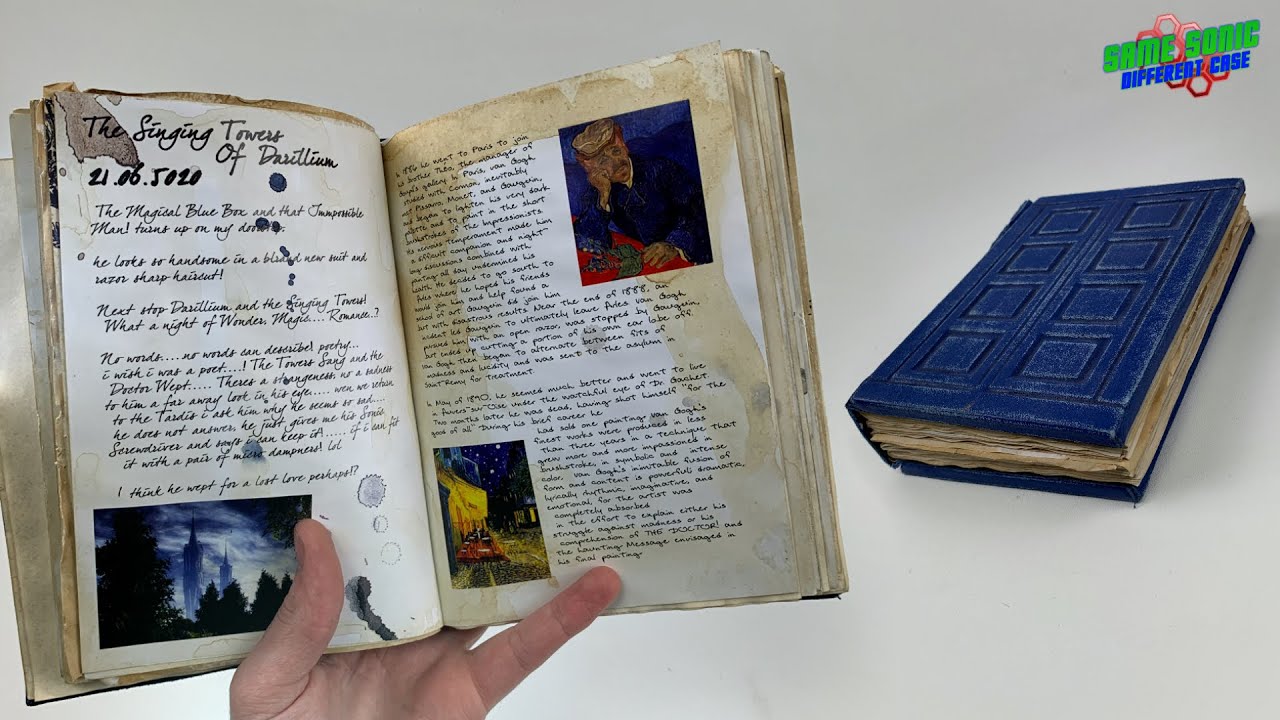 The Singing Towers
Of Darillium
21.06.5020
The Magical Blue Box and that Immpossible
Man! turns up on my doorst
he looks so handsome in a brand new suit and
razor sharp haircut!
Next stop Darillium and the Singing Towers!
What a night of Wonder, Magic.... Romance..?
No words....no words can describe! poetry...
i wish i was a poet....! The Towers Sang and the
Doctor Wept..... Theres a strangeness, no a sadness
to him a far away look in his eye..... wen we return
to the Tardis i ask him why he seems so sad....
he does not answer, he just gives me his Sonic
Screwdriver and says i can keep it!..... if i can fit
it with a pair of micro dampners! lol
I think he wept for a lost love perhaps!?
1886 he went to Paris to join
his brother Theo, the manager of
Goupil's gallery. In Paris, van Gogh
studied with Cormon, inevitably
met Pissarro, Monet, and Gauguin,
and began to lighten his very dark
palette and to paint in the short
brushstrokes of the Impressionists.
His nervous temperament made him
a difficult companion and night
long discussions combined with
painting all day undermined his
health. He decided to go south to
Arles where he hoped his friends
would join him and help found a
school of art. Gauguin did join him
but with disastrous results. Near the end of 1888, an
incident led Gauguin to ultimately leave Arles. van Gogh
pursued him with an open razor, was stopped by Gauguin,
but ended up cutting a portion of his own ear lobe off.
van Gogh then began to alternate between fits of
madness and lucidity and was sent to the asylum in
Saint-Remy for treatment.
In May of 1890, he seemed much better and went to live
in Auvers-sur-Oise under the watchful eye of Dr. Gachet.
Two months later he was dead, having shot himself "for the
good of all." During his brief career he
had sold one painting. van Gogh's
finest works were produced in less
than three years in a technique that
grew more and more impassioned in
brushstrokes, in symbolic and intense
color,
van Gogh's inimitable fusion of
form and content is powerful; dramatic,
lyrically rhythmic, imaginative, and
emotional, for the artist was
completely absorbed
in the effort to explain either his
struggle against madness or his
comprehension of THE DOCTOR! and
the haunting Message envisaged in
his final painting.
SAME SONIC
DIFFERENT CASE